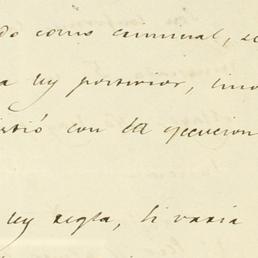 do como criminal, se
a ley posterior, sino
istió con la ejecucion
ley regla, si varia